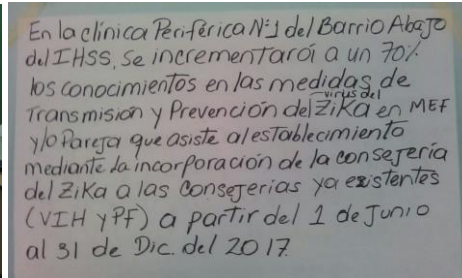 En la clínica Periférica Nº1 del Barrio Abajo
del IHSS, Se incrementará a un 70%
los conocimientos en las medidas de
Transmisión y Prevención del virus del Zika en MEF
y/o Pareja que asiste al establecimiento
mediante la incorporación de la consejería
del Zika a las Consejerias ya existentes
(VIH y PF) a partir del 1 de Junio
al 31 de Dic. del 2017